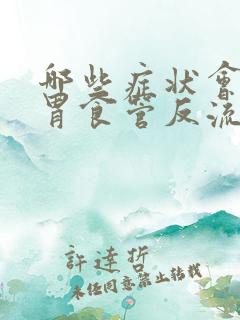 哪些症状會
胃食管反流
許達哲
未经同意禁止转载